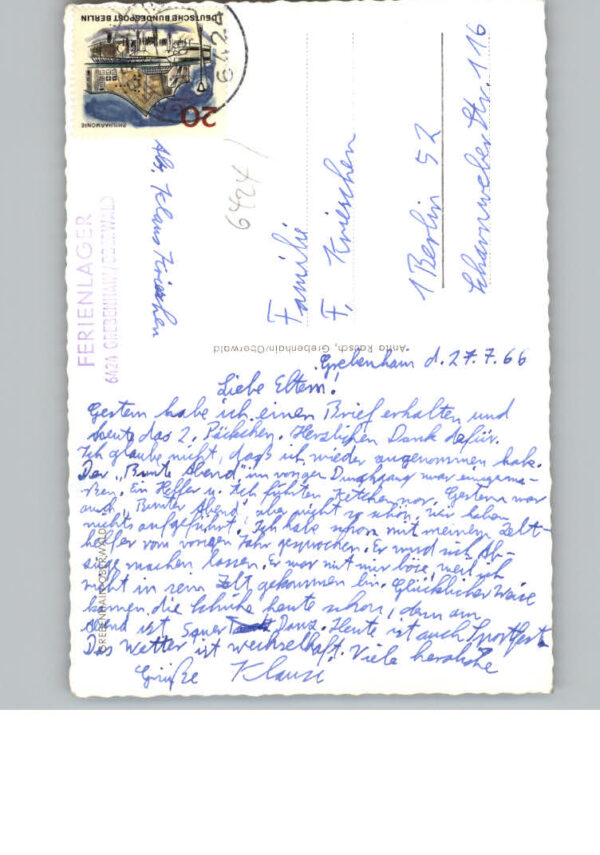 DEUTSCHE BUNDESPOST BERLIN
PHILHARMONIE
20
642
FERIENLAGER
6424 GREBENHAIN/OBERWALD
Abs. Klaus Krieschen
6424
Familie
F. Krieschen
1 Berlin 52
Scharnweber Str. 116
Anita Rausch, Grebenhain/Oberwald
GREBENHAIN/OBERWALD
Grebenhain d. 27.7.66
Liebe Eltern!
Gestern habe ich einen Brief erhalten und
heute das 2. Päckchen. Herzlichen Dank dafür.
Ich glaube nicht, daß ich wieder zugenommen habe.
Der „Bunte Abend" im vorigen Durchgang war einiger
ßen. Ein Helfer u. ich führten vor. Gestern war
auch „Bunter Abend", aber nicht so schön, wir haben
nichts aufgeführt. Ich habe schon mit meinem Zelt-
helfer vom vorigen Jahr gesprochen. Er will sich
machen lassen. Er war mit mir böse, weil ich
nicht in sein Zelt gekommen bin. Glücklicher Weise
kamen die Schuhe heute schon, denn am
Abend ist Tanz. Heute ist auch Sportfest.
Das Wetter ist wechselhaft. Viele herzliche
Grüße Klausi